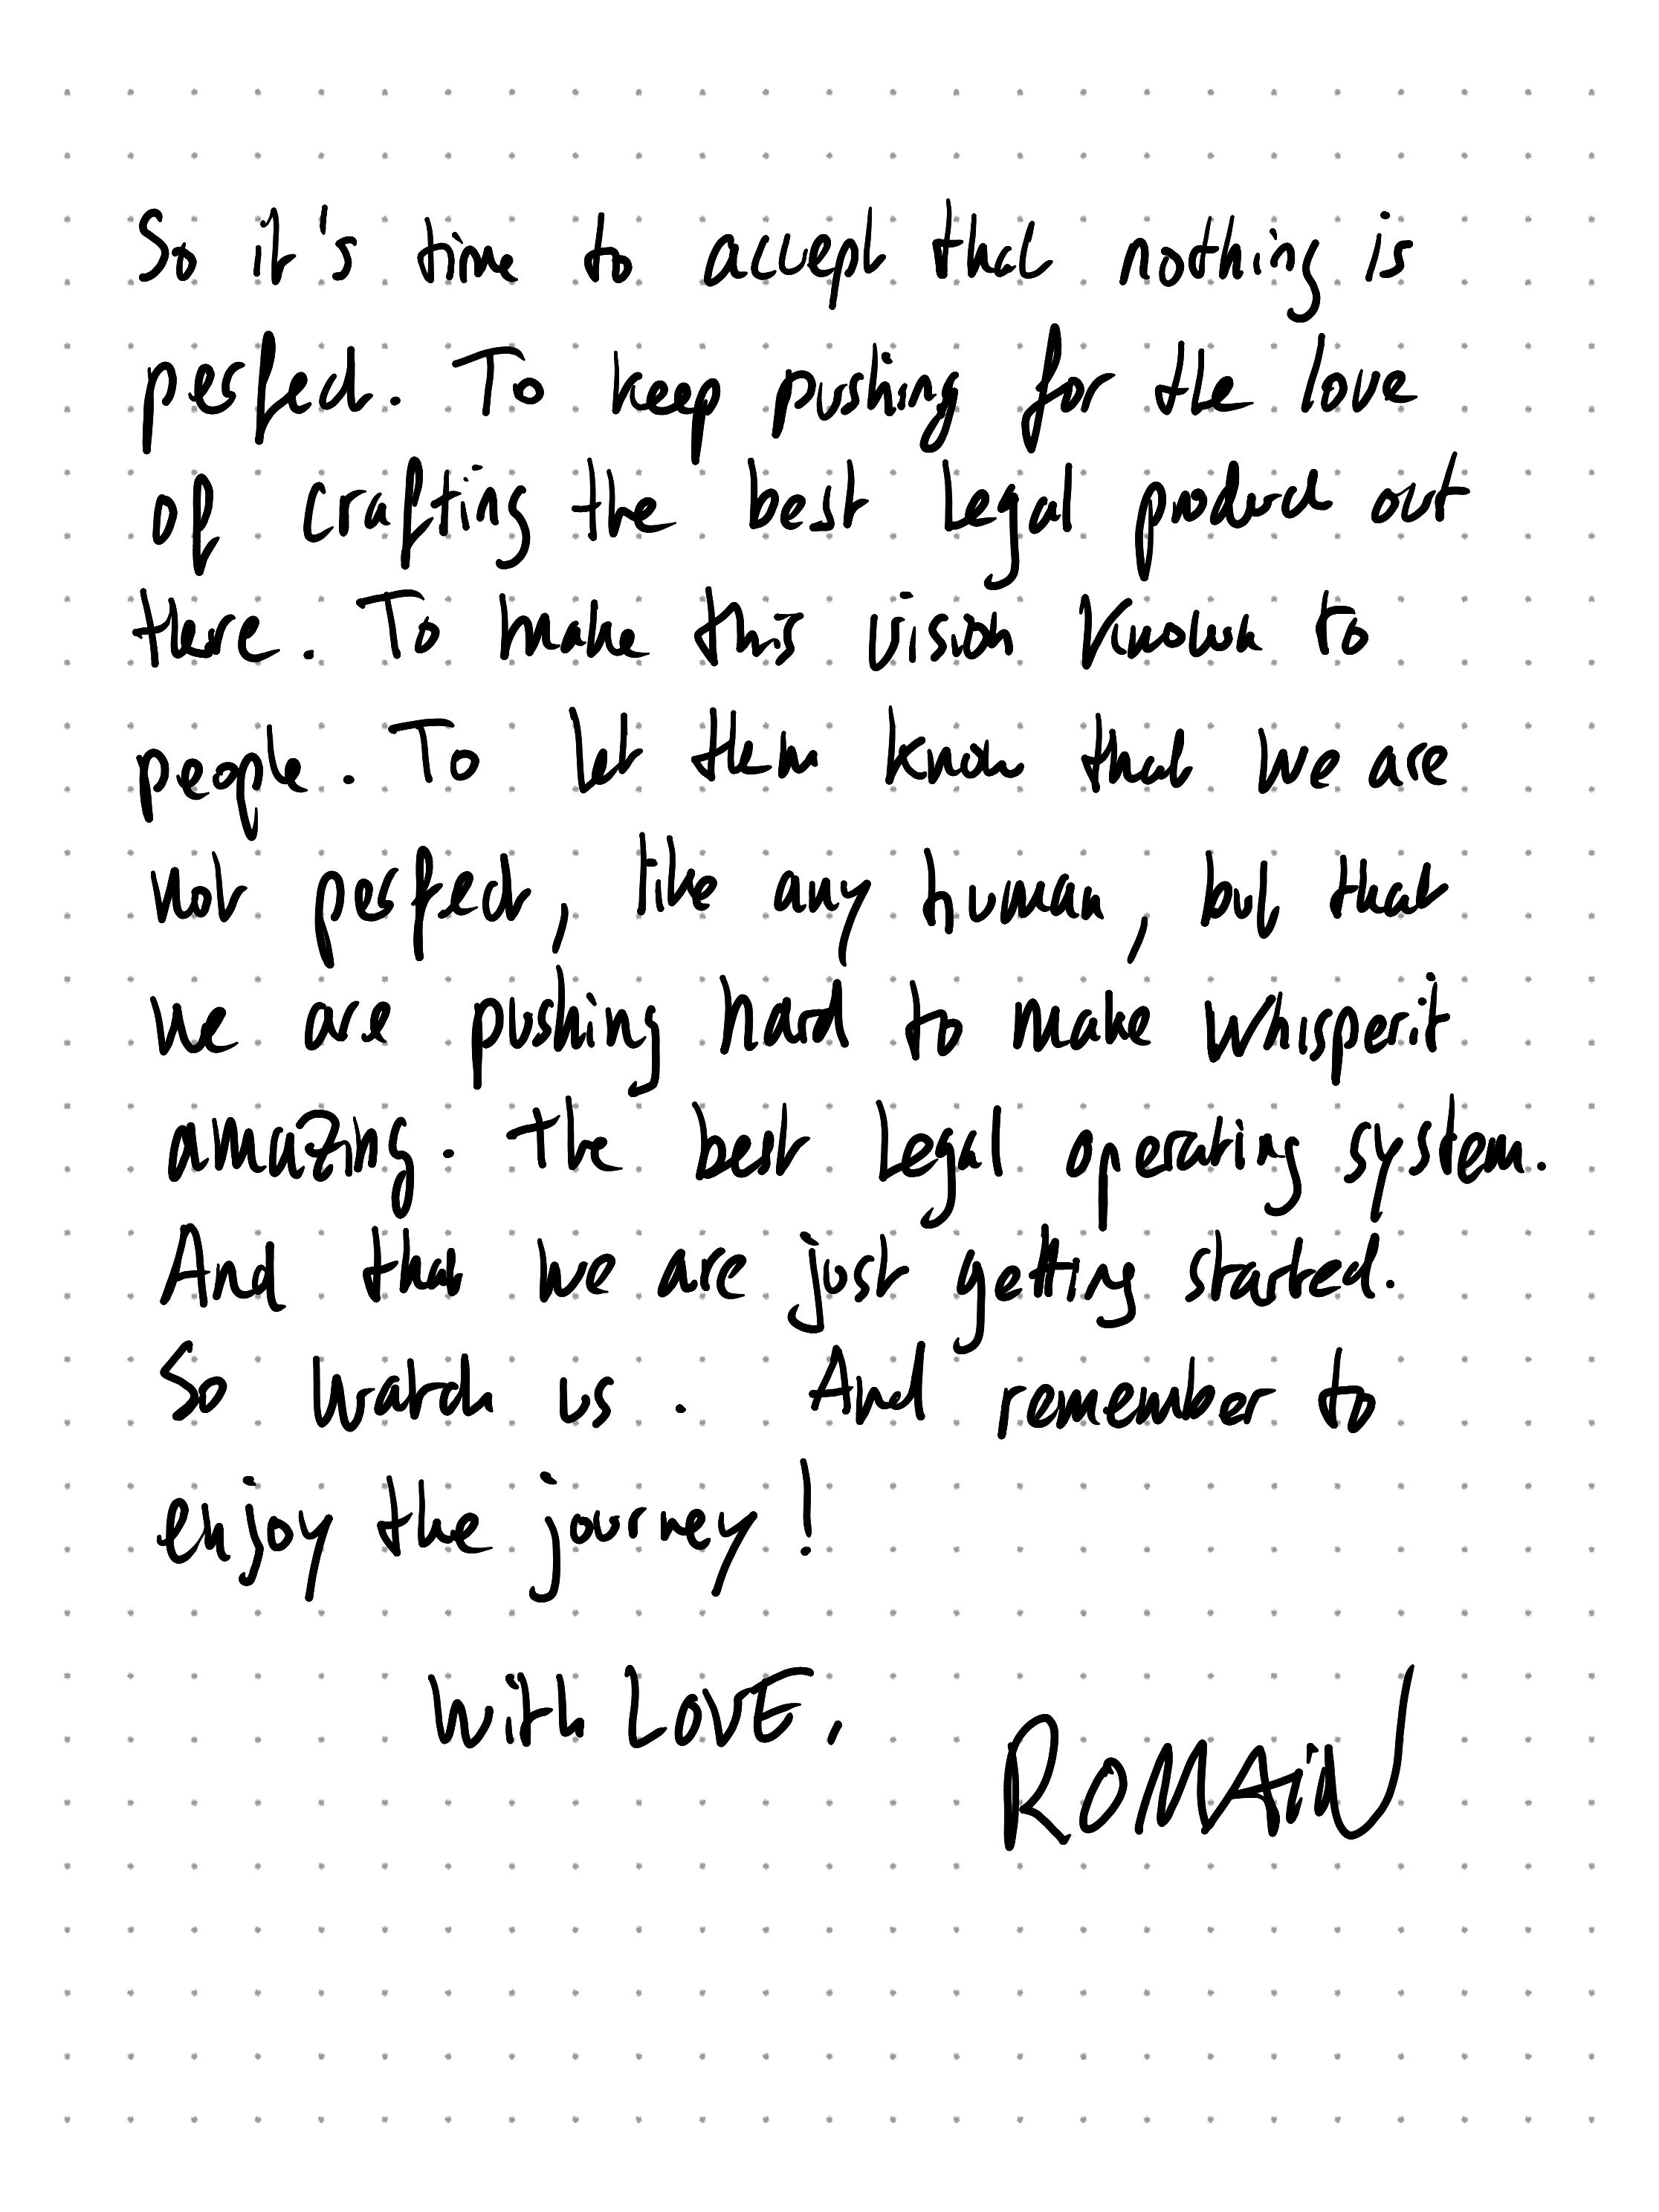 So it's time to accept that nothing is
perfect. To keep pushing for the love
of crafting the best legal product out
there. To make this vision known to
people. To let them know that we are
not perfect, like any human, but that
we are pushing hard to make whisperit
amazing. The best legal operating system.
And that we are just getting started.
So watch us. And remember to
enjoy the journey!
With LOVE,
ROMAiN